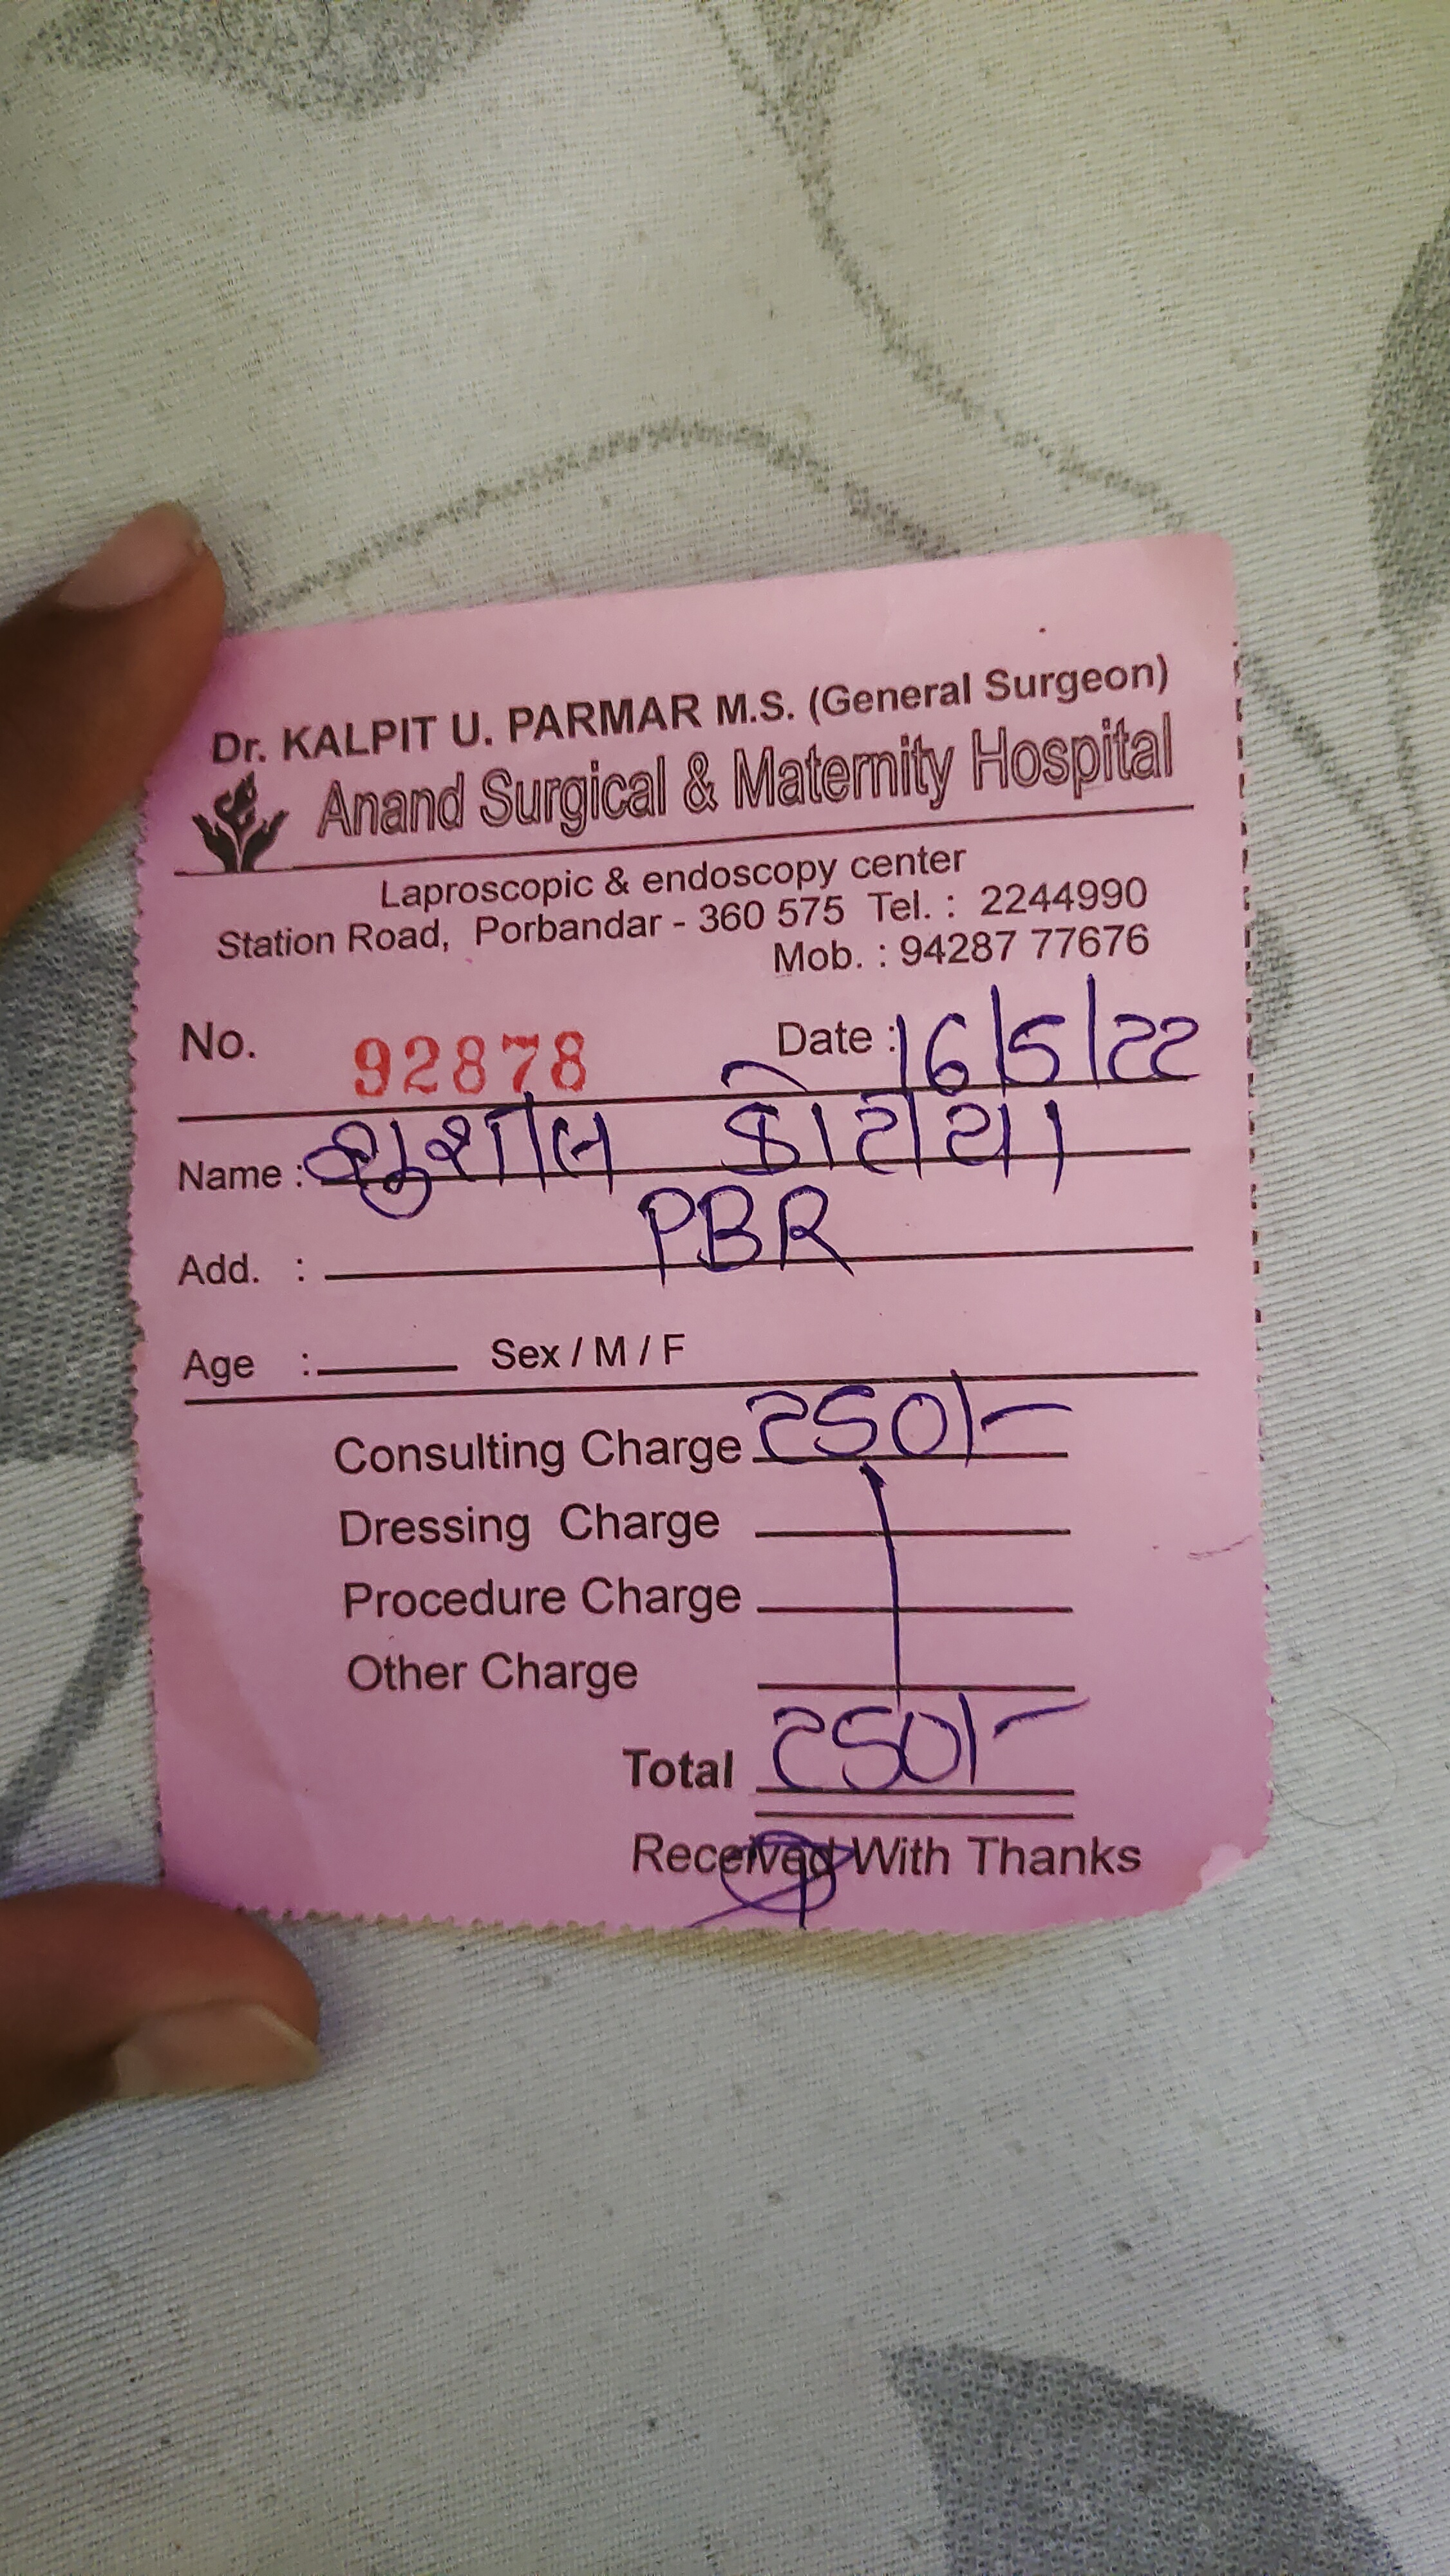 Dr. KALPIT U. PARMAR M.S. (General Surgeon)
Anand Surgical & Maternity Hospital
Laproscopic & endoscopy center
Station Road, Porbandar - 360 575 Tel. : 2244990
Mob. : 94287 77676
No. 92878 Date : 16/5/22
Name : સુશીલ કોટીયા
Add. : PBR
Age : Sex / M / F
Consulting Charge 250/-
Dressing Charge
Procedure Charge
Other Charge
Total 250/-
Received With Thanks